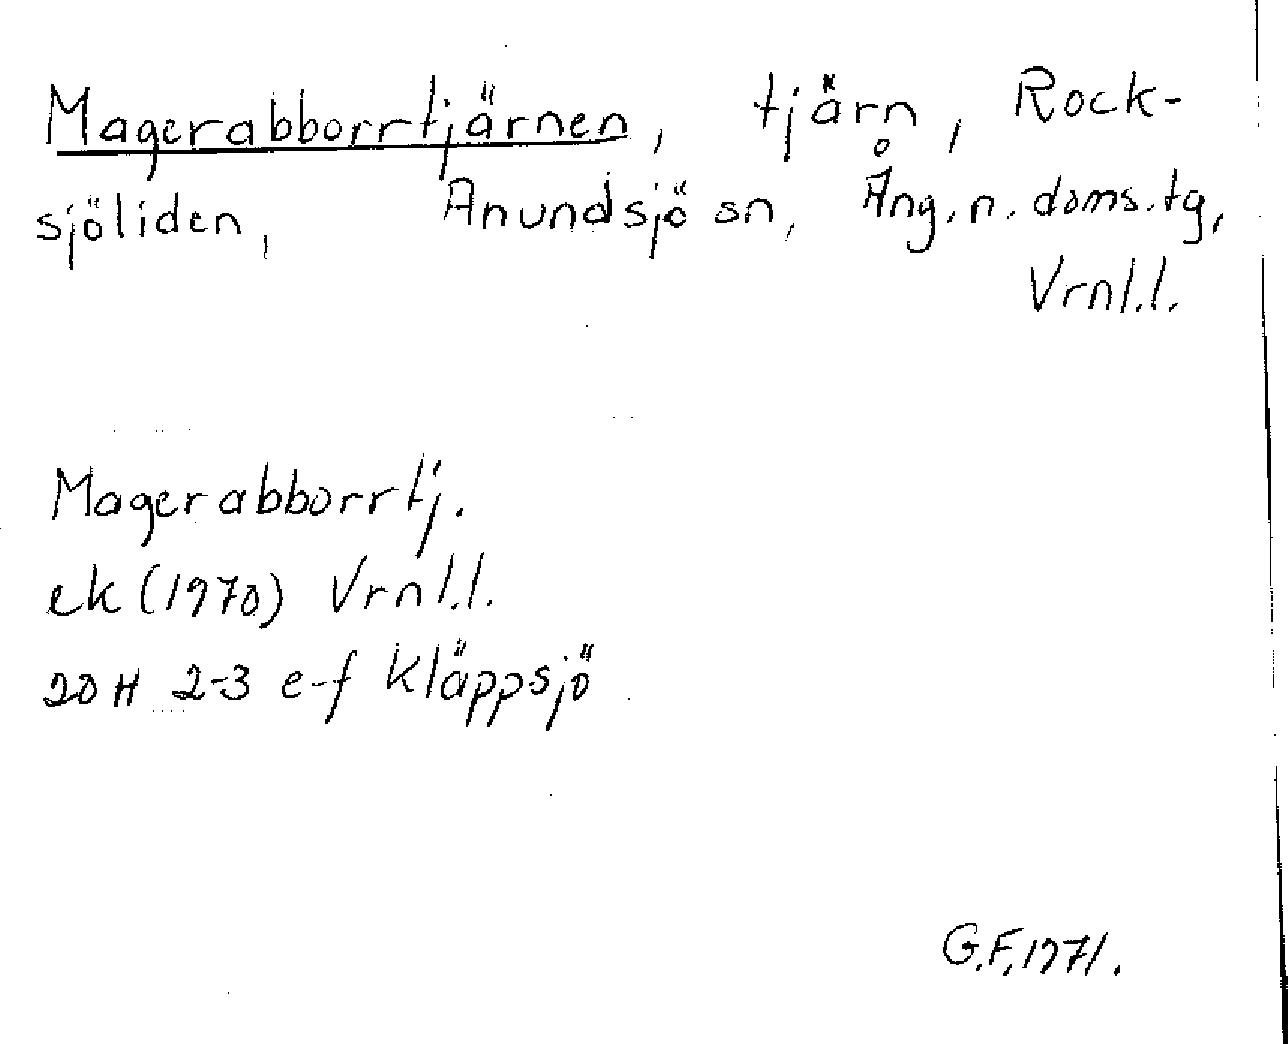 Magerabborrtjärnen, tjärn, Rock-
sjöliden, Anundsjö sn, Ång. n. doms. tg,
Vrnl.l.
Magerabborrtj.
ek (1970) Vrnl.l.
20 H 2-3 e-f Kläppsjö
G.F. 1971.